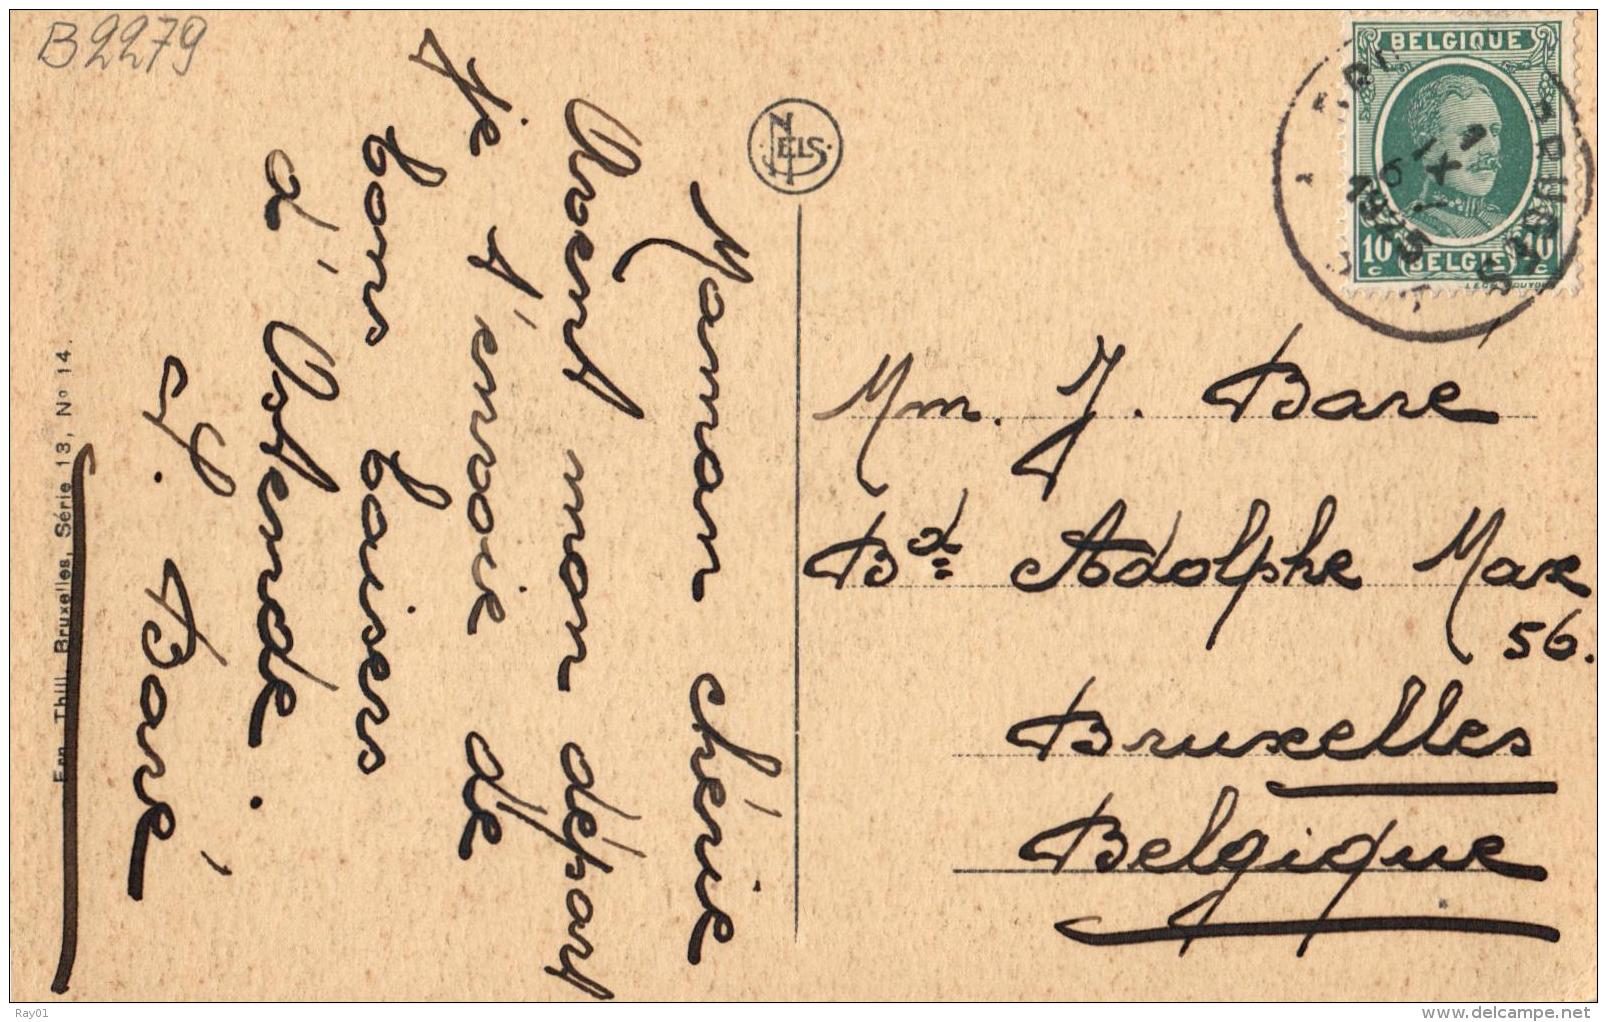 B2279
Maman chérie
Avant mon départ
je t'envoie de
bons baisers
d'Ostende.
J. Baré
Ern. Thill, Bruxelles, Série 13, Nº 14.
NELS
BELGIQUE
10 c
10 c
BELGIË
1925
Mm. J. Bare
Bd Adolphe Max
56.
Bruxelles
Belgique
Ray01
delcampe.net